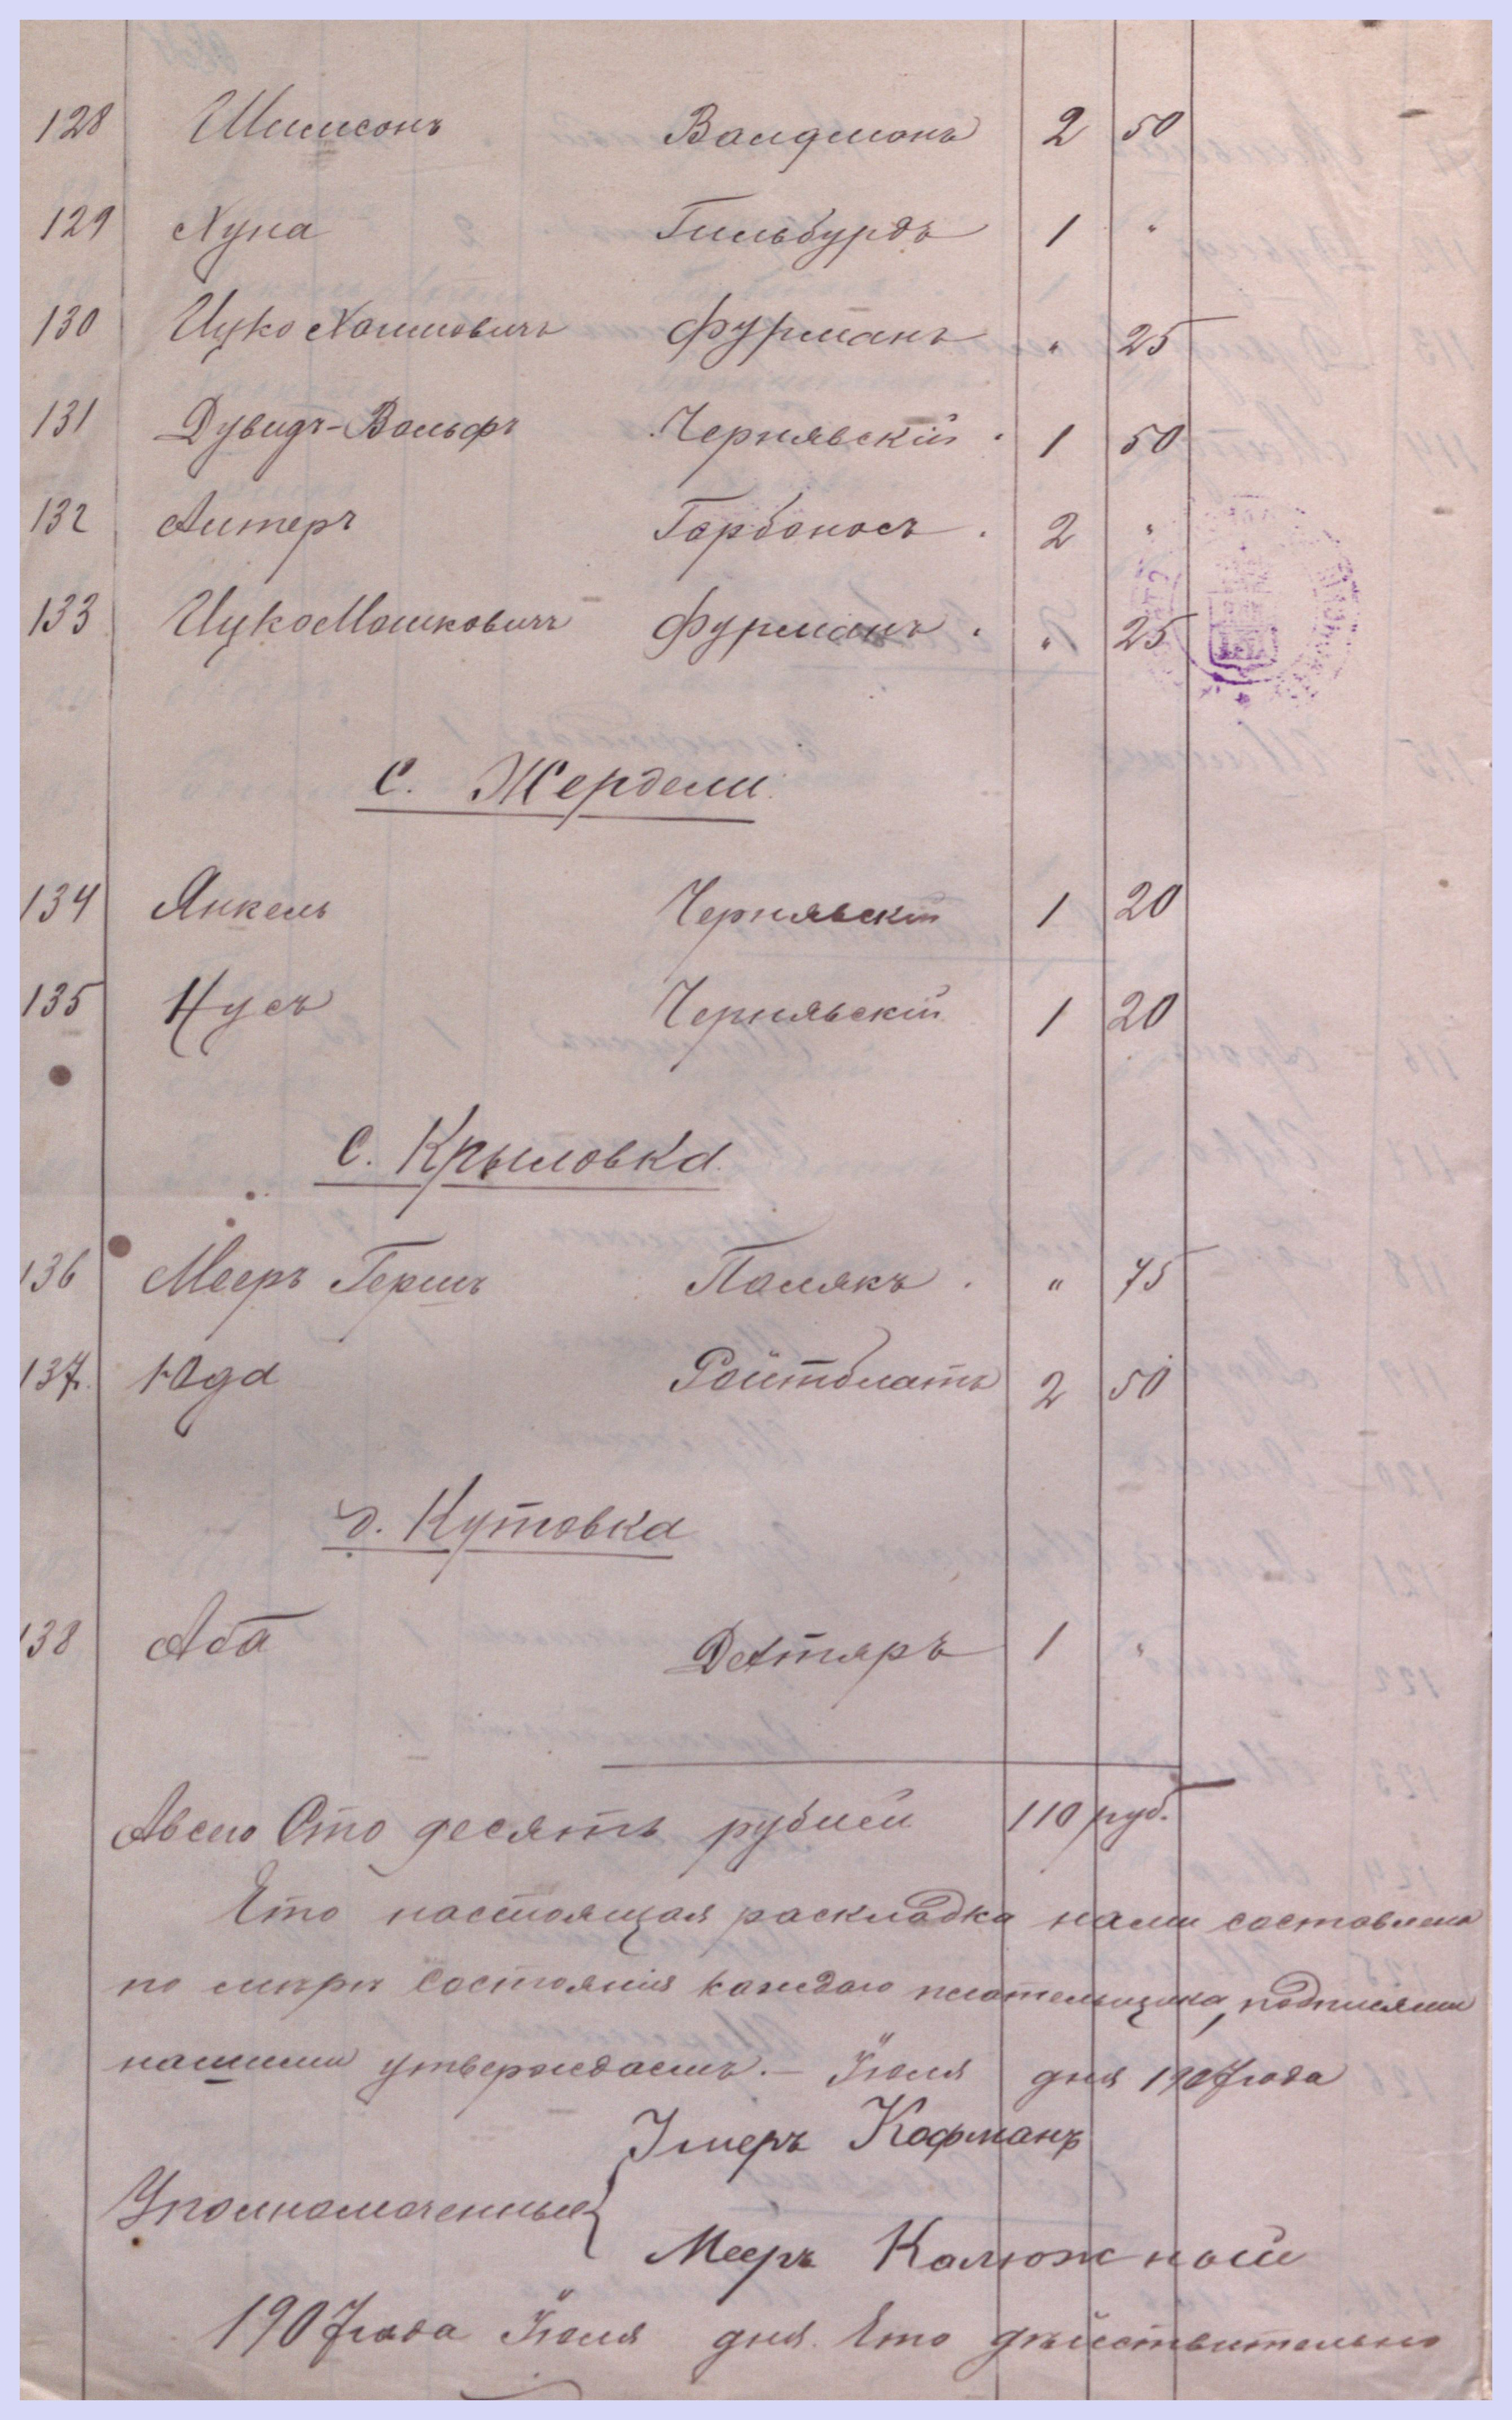 128 Шимсонъ Валдманъ 2 50
129 Хуна Гильбурдъ 1 "
130 Ицко Хаимовичъ Фурманъ " 25
131 Дувидъ-Вольфъ Чернявскій. 1 50
132 Алтеръ Гарбоносъ. 2 "
133 Ицко Мошковичъ Фурманъ. " 25
С. Жердели
134 Янкель Чернявскій 1 20
135 Нусъ Чернявскій 1 20
С. Крыловка
136 Мееръ Гершъ Полякъ. " 75
137. Юда Ройтблатъ 2 50
д. Кутовка
138 Аба Дехтяръ 1 "
А всего Сто десять рублей 110 руб.
Что настоящая раскладка нами составлена
по мѣрѣ состоянія каждаго плательщика, подписями
нашими утверждаемъ.— Іюля дня 1907 года
Кофманъ
Уполномоченные {
Мееръ Калюжной
1907 года Іюля дня. Что дѣйствительно